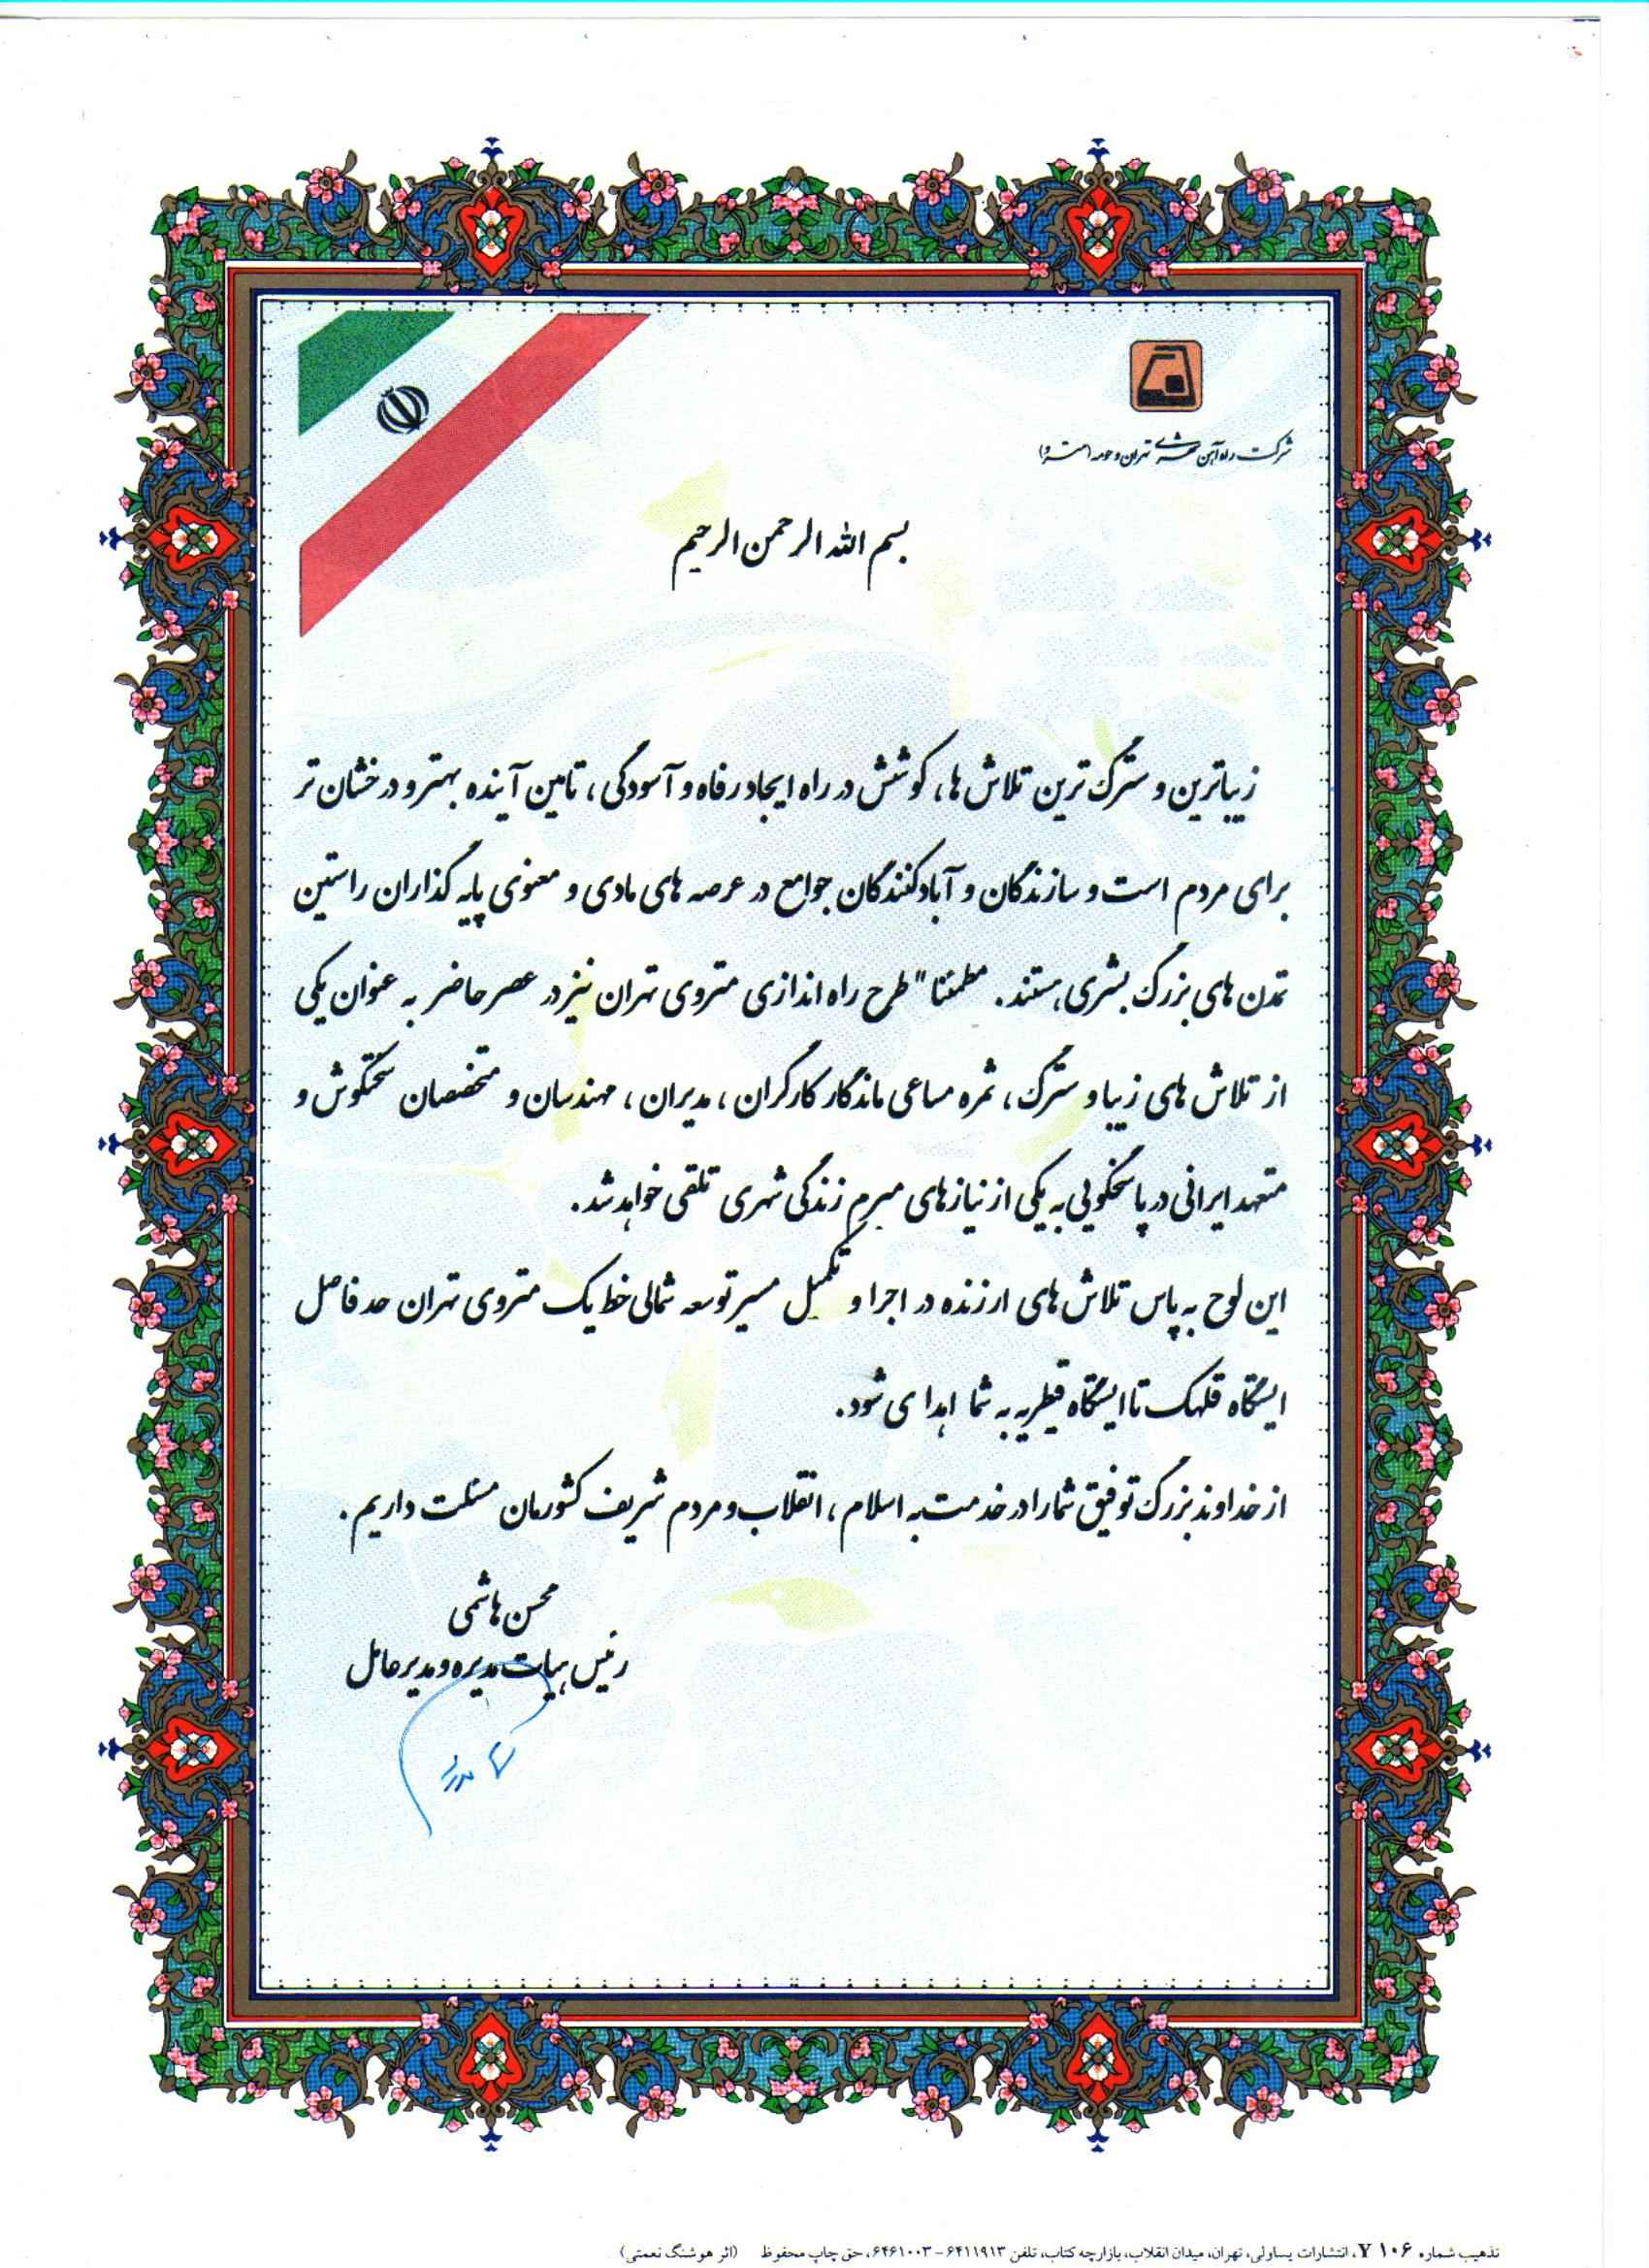 شرکت راه آهن شهری تهران و حومه (مترو)
بسم الله الرحمن الرحیم
زیباترین و سترگ ترین تلاش ها، کوشش در راه ایجاد رفاه و آسودگی، تامین آینده بهتر و درخشان تر
برای مردم است و سازندگان و آبادکنندگان جوامع در عرصه های مادی و معنوی پایه گذاران راستین
تمدن های بزرگ بشری هستند. مطمئنا" طرح راه اندازی متروی تهران نیز در عصر حاضر به عنوان یکی
از تلاش های زیبا و سترگ، ثمره مساعی ماندگار کارگران، مدیران، مهندسان و متخصصان سختکوش و
متعهد ایرانی در پاسخگویی به یکی از نیازهای مبرم زندگی شهری تلقی خواهد شد.
این لوح به پاس تلاش های ارزنده در اجرا و تکمیل مسیر توسعه شمالی خط یک متروی تهران حد فاصل
ایستگاه قلهک تا ایستگاه قیطریه به شما اهدا می شود.
از خداوند بزرگ توفیق شما را در خدمت به اسلام، انقلاب و مردم شریف کشورمان مسئلت داریم.
محسن هاشمی
رئیس هیات مدیره و مدیرعامل
تذهیب شماره Y ۱۰۶، انتشارات یساولی، تهران، میدان انقلاب، بازارچه کتاب، تلفن ۶۴۱۱۹۱۳ - ۶۴۶۱۰۰۳، حق چاپ محفوظ (اثر هوشنگ نعمتی)